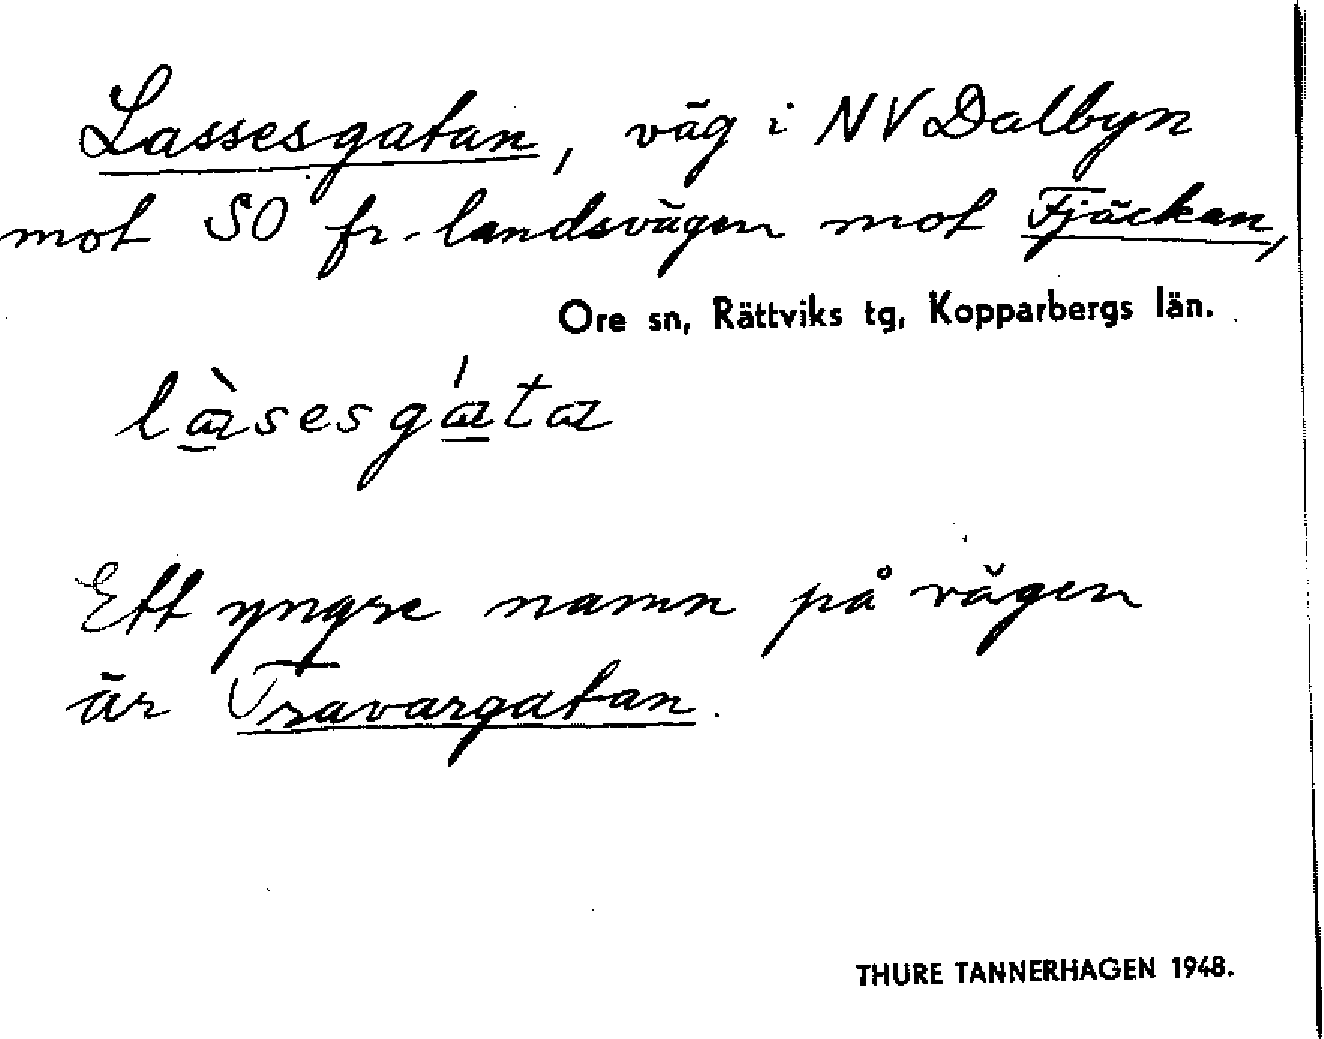 Lassesgatan, väg i NV Dalbyn
mot SO fr. landsvägen mot Fjäckan,
Ore sn, Rättviks tg, Kopparbergs län.
làsesgáta
Ett yngre namn på vägen
är Travargatan.
THURE TANNERHAGEN 1948.